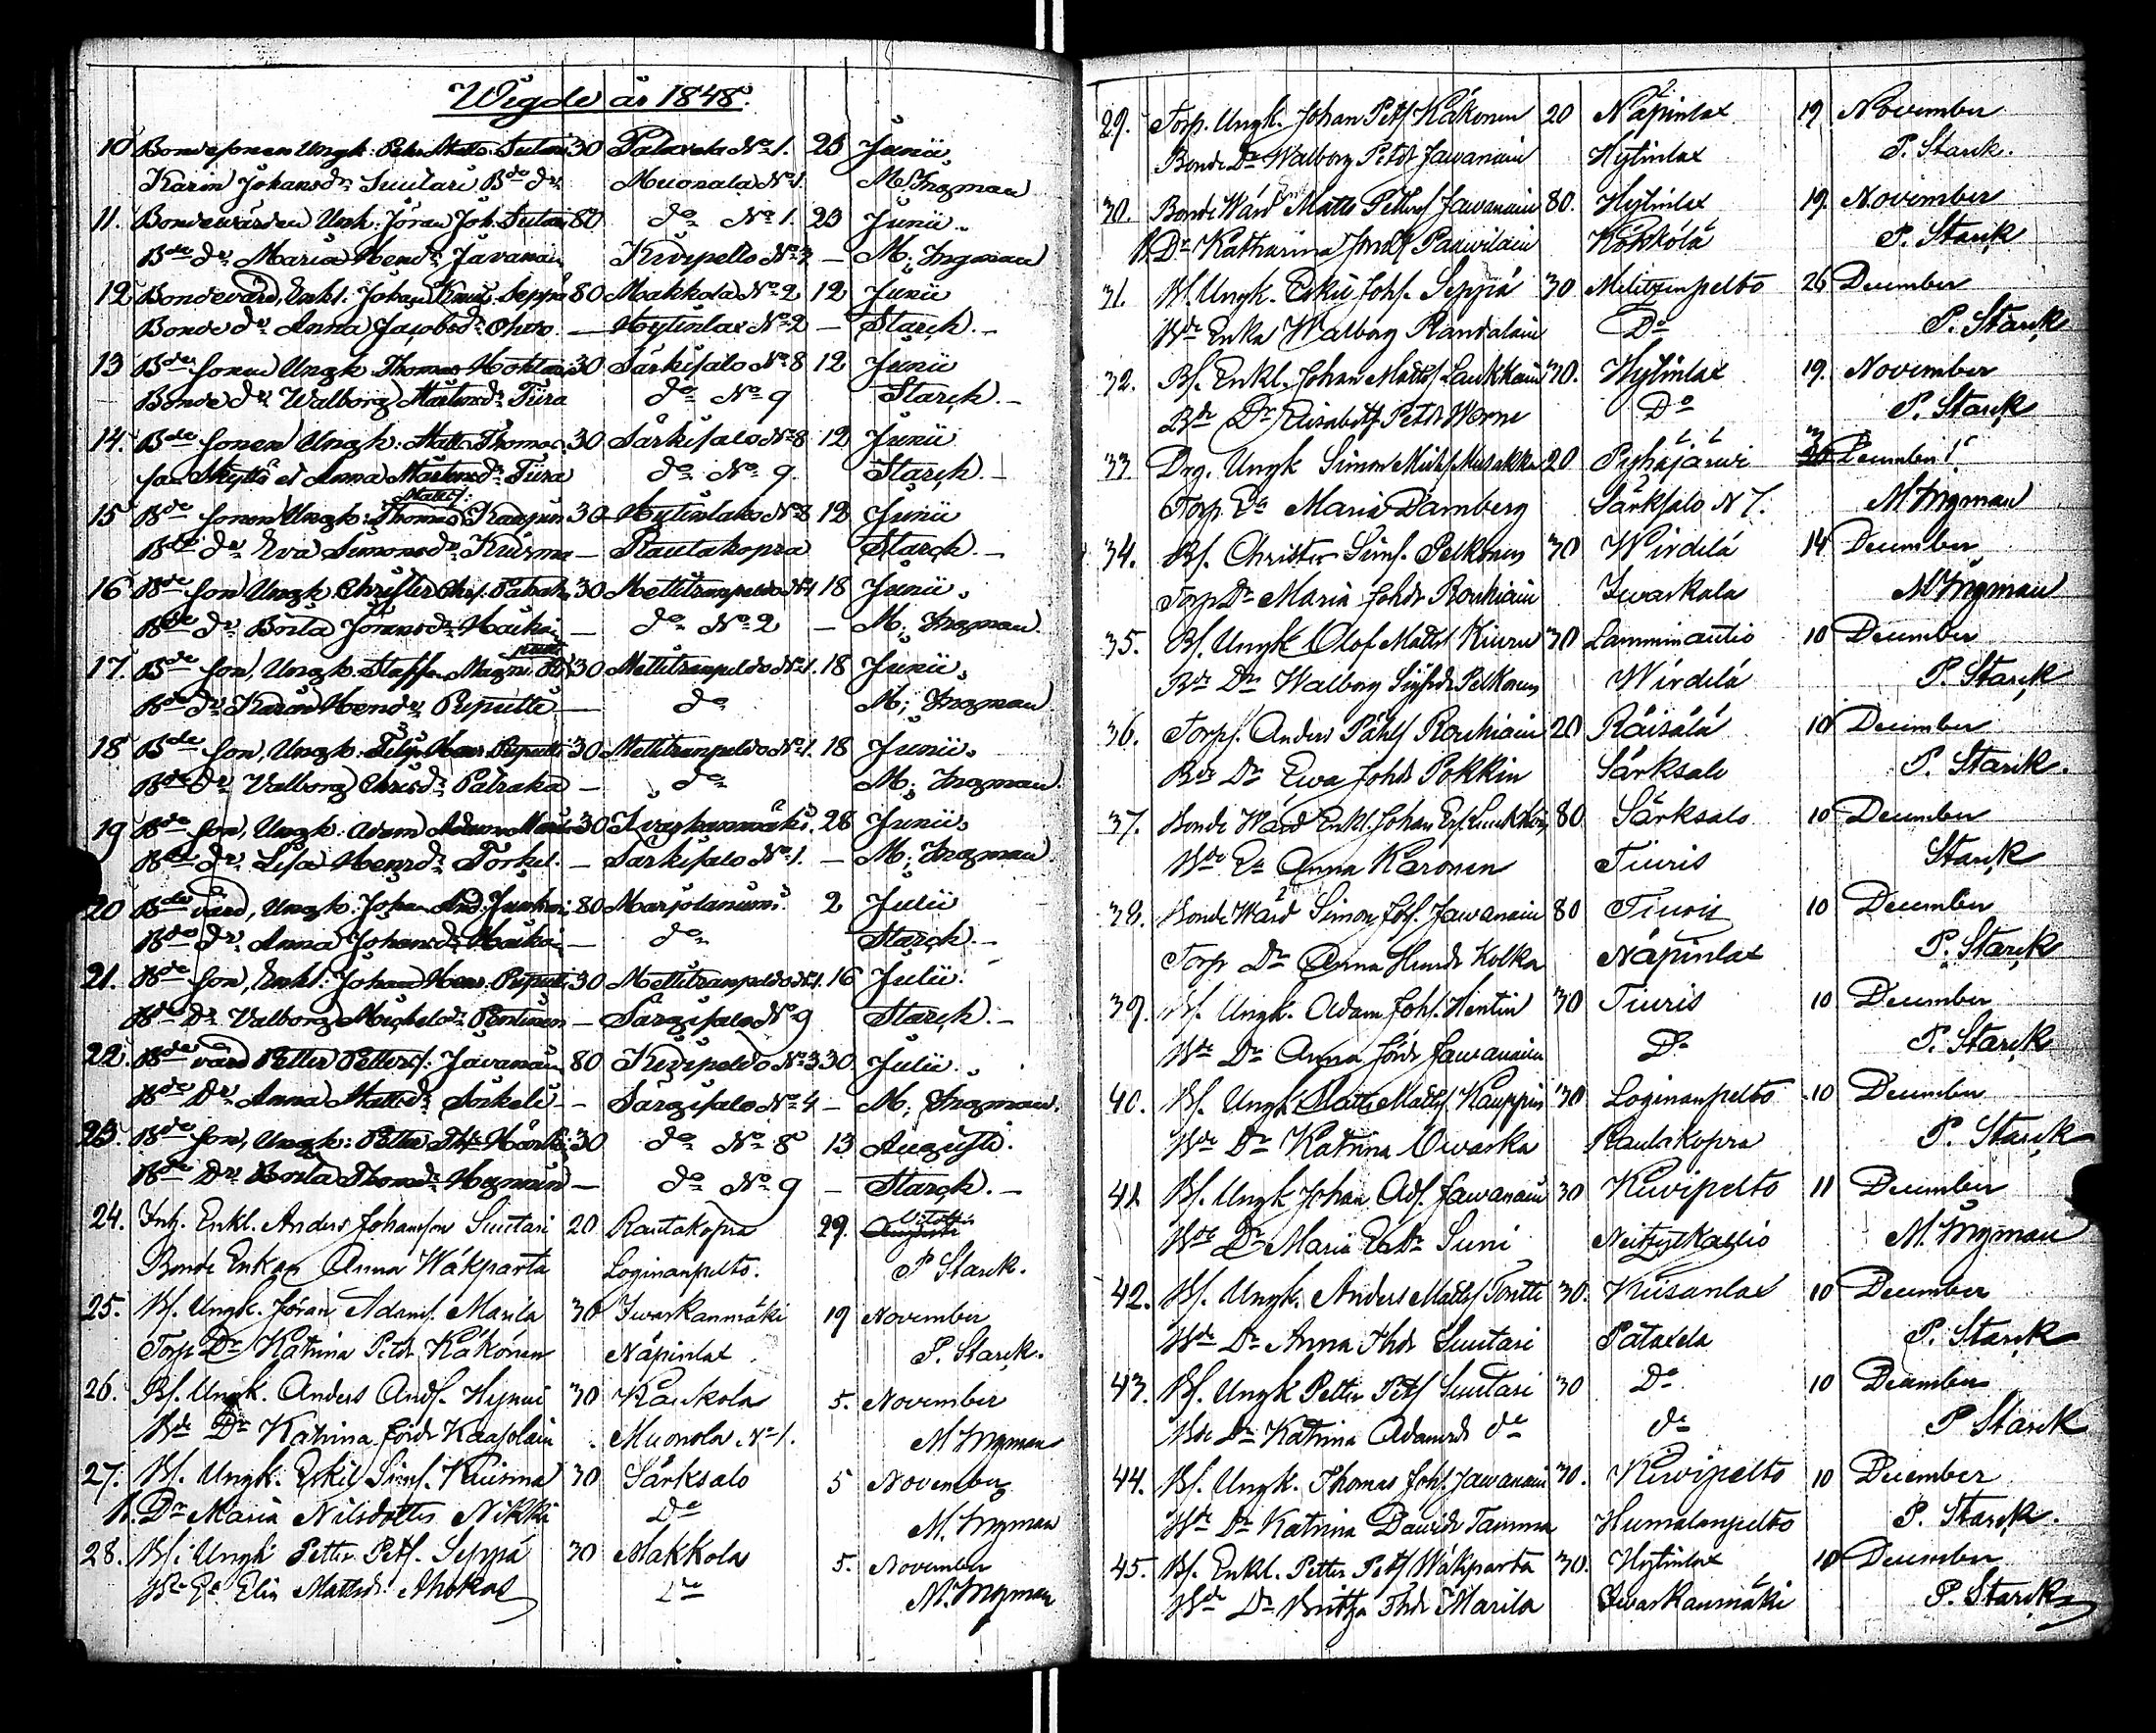 Wigde år 1848.
10 Bondesonen Ungk: Petr Matts. Sutari 30 Patavela No 1. 23 Junii,
Karin Johansdr Suutari Bde dr. Muonala No 1. M. Ingman
11. Bondevärden Unk: Jöran Joh. Sutari 80 do No 1. 23 Junii.
Bde dr. Maria Hendr. Javanain Kivipelto No 3 — M. Ingman
12 Bondevärd, Enkl. Johan Seppä 80 Makkola No 2 12 Junii
Bonde dr Anna Jacobsdr — Hytinlax No 2 — Starck. —
13 Bde sonen Ungk Thomas 30 Särkisalo No 8 12 Junii
Bonde dr Walborg Mårtensdr Tiira do No 9 Starck. —
14. Bde sonen Ungk: Matts Thomas 30 Särkisalo No 8 12 Junii
son Myllö et Anna Mårtensdr Tiira do No 9. Starck. —
Matts:
15 Bde sonen Ungk: Thomas Kaupin 30 Hytinlaks No 8 12 Junii
Bde dr Eva Simonsdr — Rautakopra Starck. —
16 Bde son Ungk Christer Chrs. Patraka 30 Mellitzanpeldo No 1 18 Junii,
Bde dr Brita Jöransdr Haikoi — do No 2 — M. Ingman.
17. Bde son, Ungk. Staffan Magni 30 Mellitzanpeldo No 1. 18 Junii,
Bde dr. Karin Hendr. Reputti — do M. Ingman
18 Bde son, Ungk. Filip Hen. Reputti 30 Mellitzanpeldo No 1. 18 Junii,
Bde dr Valborg Chrisdr Patraka — do M. Ingman.
19 Bde son, Ungk. Adam 30 Ivaskanmäki. 28 Junii,
Bde dr Lisa Henrdr Torkel. — Särkisalo No 1. — M. Ingman
20 Bde värd, Ungk. Johan And. 80 Marjolaniemi 2 Julii
Bde dr Anna Johansdr — do Starck. —
21. Bde son, Enkl: Johan Hen. Reputti 30 Mellitzanpeldo No 1. 16 Julii.
Bde Dr Valborg Michelsdr Pentinen — Särgisalo No 9 Starck. —
22. Bde värd Petter Petters: Javanain 80 Kivipeldo No 3 30. Julii.
Bde Dr Anna Mattsdr Torkeli — Särgisalo No 4 — M. Ingman.
23. Bde son, Ungk: Petter 30 do No 8 13 Augusti.
Bde Dr Brita Thomdr — do No 9 — Starck. —
24. Inh. Enkl. Anders Johansson Suutari 20 Rautakopra 29. Augusti October
Bonde Enkan Anna Wäkparta Loginanpelto. P. Starck.
25. Bs. Ungk. Jöran Adams. Marila 30 Iwaskanmäki 19 November
Torp Dr Katrina Petdr Käkönen Näpinlax P. Starck.
26. Bs. Ungk. Anders Ands. 30 Kaukola 5. November
Bde Dr Katrina Jördr Kaasolain Muonola No 1. M Ingman
27. Bs. Ungk. Eskil Sims. Kuisma 30 Särksalo 5 November
B. Dr Maria Nilsdotter Nikki Do M. Ingman
28. Bs. Ungk Petter Pets. Seppä 30 Makkola 5. November
Elin Mattsdr Ahokas Do M. Ingman
29. Torp. Ungk. Johan Pets Käkönen 20 Näpinlax 19 November
Bonde Dr Walborg Petdr Jawanain Hytinlax P. Starck.
30. Bonde Wärd Matts Petters Jawanain 80. Hytinlax 19. November
B. Dr Katharina Parwilain Kökkölä P. Starck
31. B. Ungk. Erkii Johs. Seppä 30 Melitzanpelto 26 December
Bde Enka Walborg Randalain Do P. Starck
32. Bs. Enkl. Johan Matts Laukkain 30. Hytinlax 19. November
Bde Dr Elisabeth Petdr Worne Do P. Starck
33. Drg. Ungk Simon Mich Musakka 20 Pyhäjärwi 3 December!
Torp. Dr Maria Damberg Särksalo N 7. M Ingman
34. Bs. Christer Sims. Pelkonen 30 Wirdilä 14 December
Torp Dr Maria Johdr Rouhiain Iwaskala M Ingman
35. Bs. Ungk Olof Matts Kiuru 30 Lamminautio 10 December
Bde Dr Walborg Sigfrdr Pelkonen Wirdilä P. Starck
36. Torps. Anders Påhls Rouhiain 20 Räisälä 10 December
Bde Dr Ewa Johdr Pokkin Särksalo P. Starck.
37. Bonde Wärd Enkl. Johan 80 Särksalo 10 December
Bde Ea Anna Karonen Tiuris Starck
38. Bonde Wärd Simon Johs. Jawanain 80 Tiuris 10 December
Torp Dr Anna Hendr Kolka Näpinlax P. Starck
39. Bs. Ungk. Adam Johs. Hentin 30 Tiuris 10 December
Bde Dr Anna Jördr Jawanain Do P. Starck
40. Bs. Ungk. Matts Matts Kauppin 30 Loginanpelto 10 December
Bde Dr Katrina Owaska Rautakopra P. Starck
41. Bs. Ungk Johan Ads. Jawanain 30 Kiwipelto 11 December
Bde Dr Maria Suni Neitzytkallio M. Ingman
42. Bs. Ungk. Anders Matts Tontti 30. Riisanlax 10 December
Bde Dr Anna Thdr Suutari Patavela P. Starck
43. Bs. Ungk Petter Pets Suutari 30 Do 10 December
Bde Dr Katrina Adamsdr do do P Starck
44. Bs. Ungk. Thomas Johs. Jawanain 30. Kiwipelto 10 December
Bde Dr Katrina Dawidr Tamma Humalanpelto P. Starck.
45. Bs. Enkl. Petter Pets Wäkparta 30. Hytinlax 10 December
Bde Dr Britta Thdr Marila Iwaskanmäki P. Starck